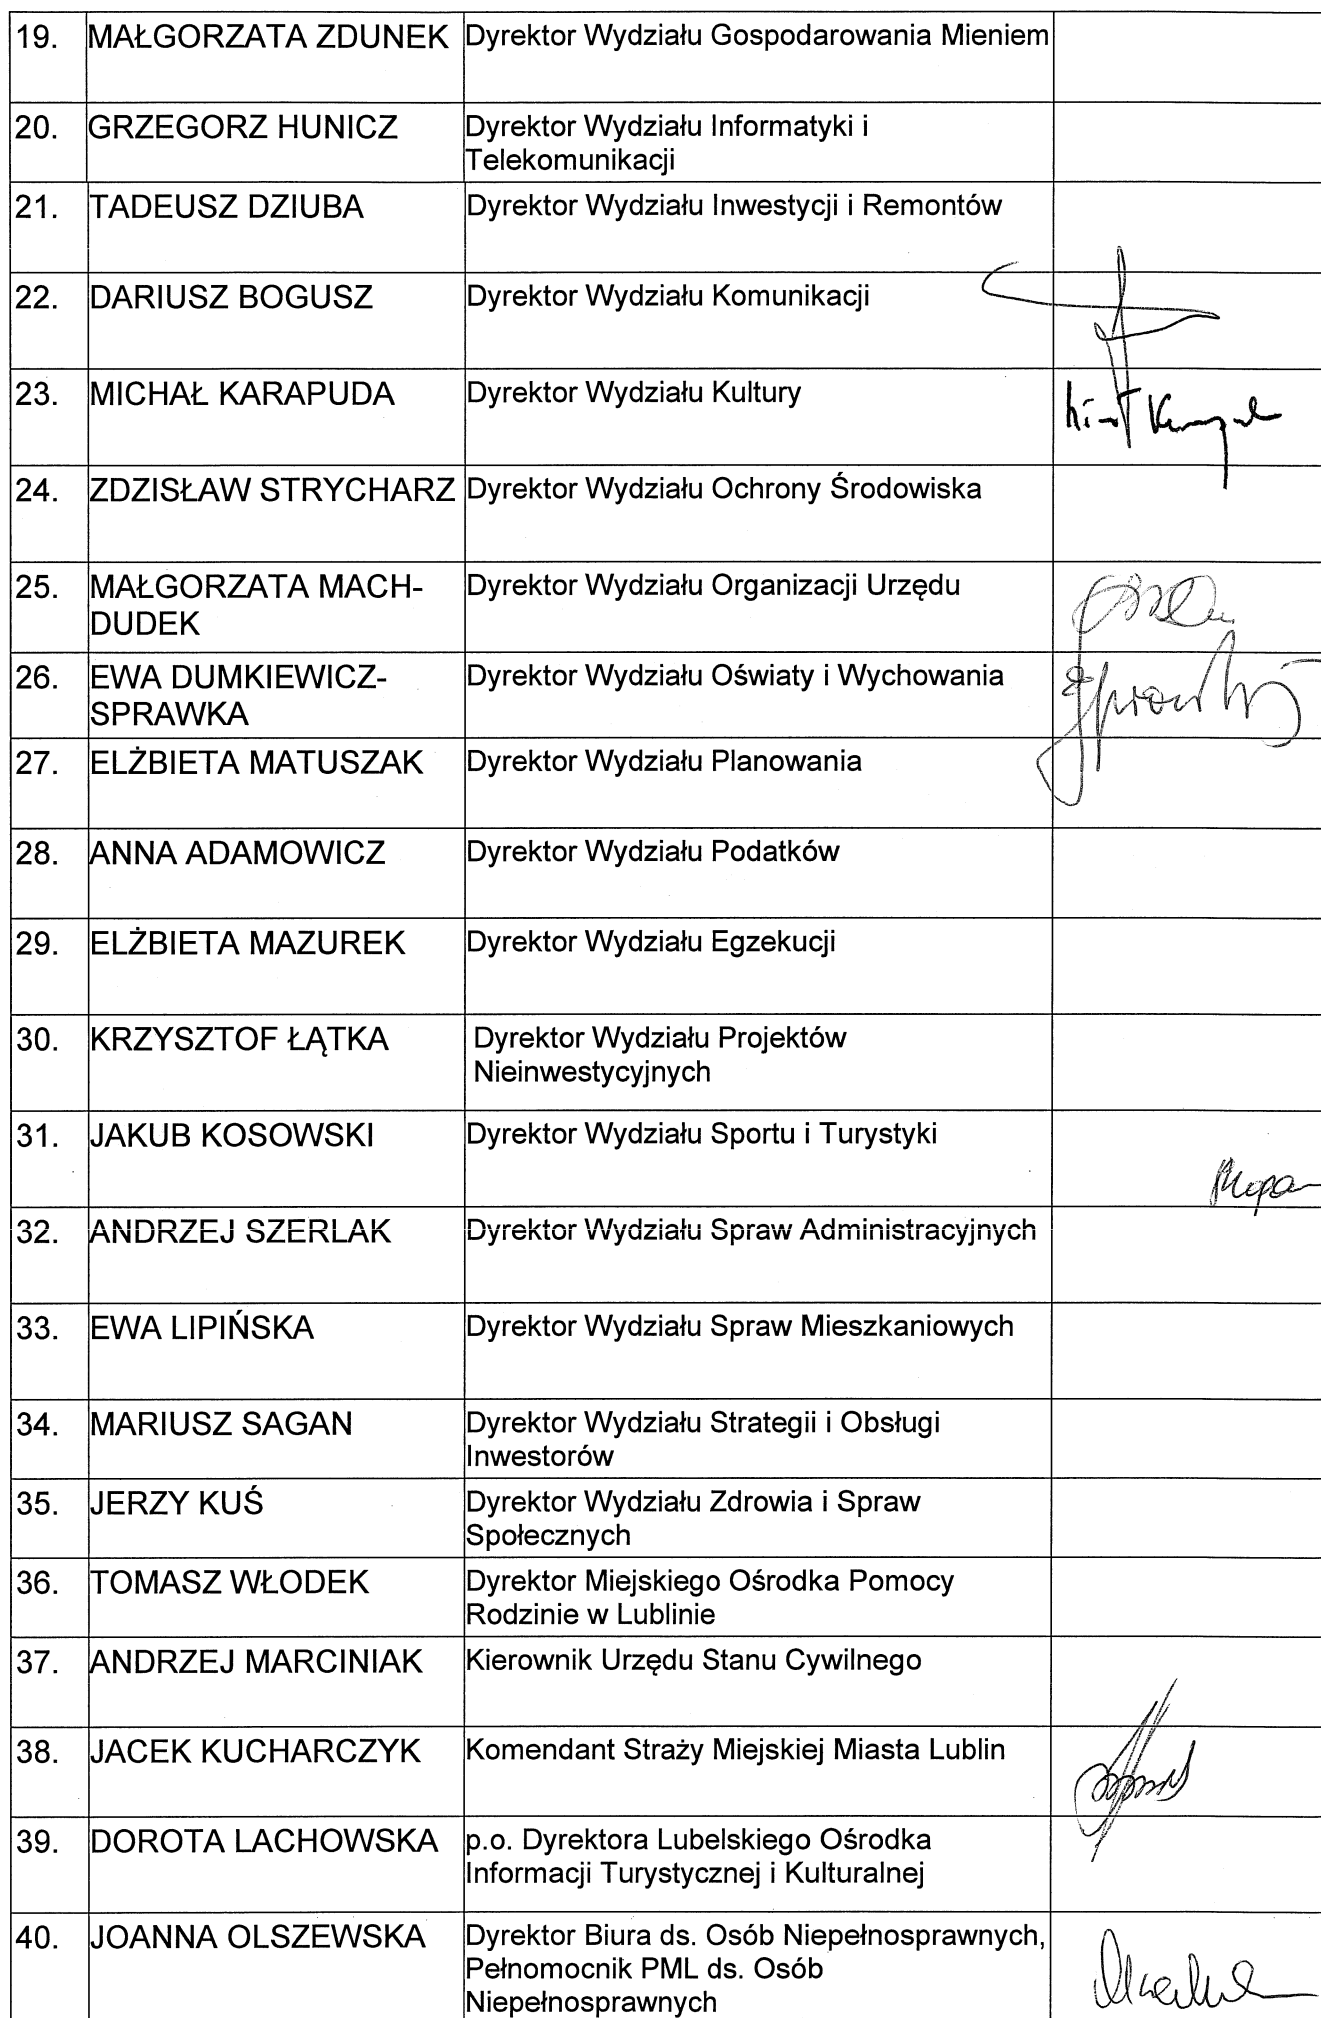 19. MAŁGORZATA ZDUNEK Dyrektor Wydziału Gospodarowania Mieniem
20. GRZEGORZ HUNICZ Dyrektor Wydziału Informatyki i
Telekomunikacji
21. TADEUSZ DZIUBA Dyrektor Wydziału Inwestycji i Remontów
22. DARIUSZ BOGUSZ Dyrektor Wydziału Komunikacji
23. MICHAŁ KARAPUDA Dyrektor Wydziału Kultury
24. ZDZISŁAW STRYCHARZ Dyrektor Wydziału Ochrony Środowiska
25. MAŁGORZATA MACH- Dyrektor Wydziału Organizacji Urzędu
DUDEK
26. EWA DUMKIEWICZ- Dyrektor Wydziału Oświaty i Wychowania
SPRAWKA
27. ELŻBIETA MATUSZAK Dyrektor Wydziału Planowania
28. ANNA ADAMOWICZ Dyrektor Wydziału Podatków
29. ELŻBIETA MAZUREK Dyrektor Wydziału Egzekucji
30. KRZYSZTOF ŁĄTKA Dyrektor Wydziału Projektów
Nieinwestycyjnych
31. JAKUB KOSOWSKI Dyrektor Wydziału Sportu i Turystyki
32. ANDRZEJ SZERLAK Dyrektor Wydziału Spraw Administracyjnych
33. EWA LIPIŃSKA Dyrektor Wydziału Spraw Mieszkaniowych
34. MARIUSZ SAGAN Dyrektor Wydziału Strategii i Obsługi
Inwestorów
35. JERZY KUŚ Dyrektor Wydziału Zdrowia i Spraw
Społecznych
36. TOMASZ WŁODEK Dyrektor Miejskiego Ośrodka Pomocy
Rodzinie w Lublinie
37. ANDRZEJ MARCINIAK Kierownik Urzędu Stanu Cywilnego
38. JACEK KUCHARCZYK Komendant Straży Miejskiej Miasta Lublin
39. DOROTA LACHOWSKA p.o. Dyrektora Lubelskiego Ośrodka
Informacji Turystycznej i Kulturalnej
40. JOANNA OLSZEWSKA Dyrektor Biura ds. Osób Niepełnosprawnych,
Pełnomocnik PML ds. Osób
Niepełnosprawnych